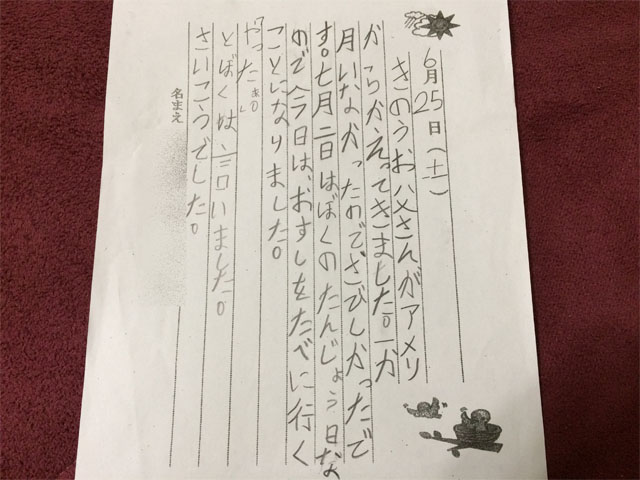 6月25日(土)
きのうお父さんがアメリ
カからかえってきました。一か
月いなかったので、さびしかったで
す。七月二日はぼくのたんじょう日な
ので今日は、おすしをたべに行く
ことになりました。
「やったぁ。」
とぼくは、言いました。
さいこうでした。
名まえ